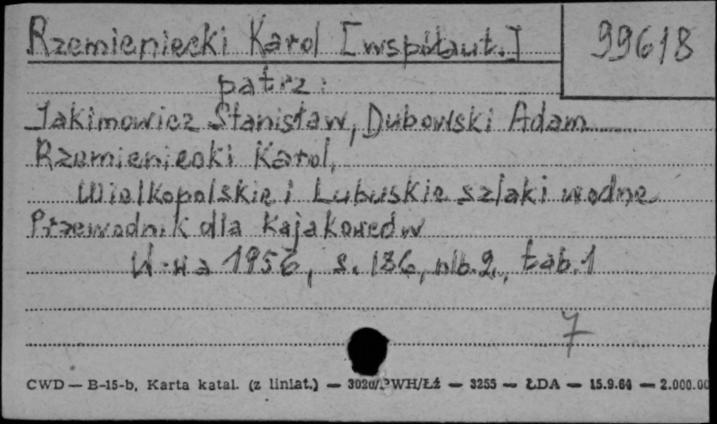 Rzemieniecki Karol [współaut.] 99618
patrz:
Jakimowicz Stanisław, Dubowski Adam
Rzemieniecki Karol,
Wielkopolskie i Lubuskie szlaki wodne
Przewodnik dla kajakowców
W-wa 1956, s. 186, nlb. 2, tab. 1
7
CWD — B-15-b, Karta katal. (z liniat.) — 3020/PWH/Łź — 3255 — ŁDA — 15.9.64 — 2.000.00